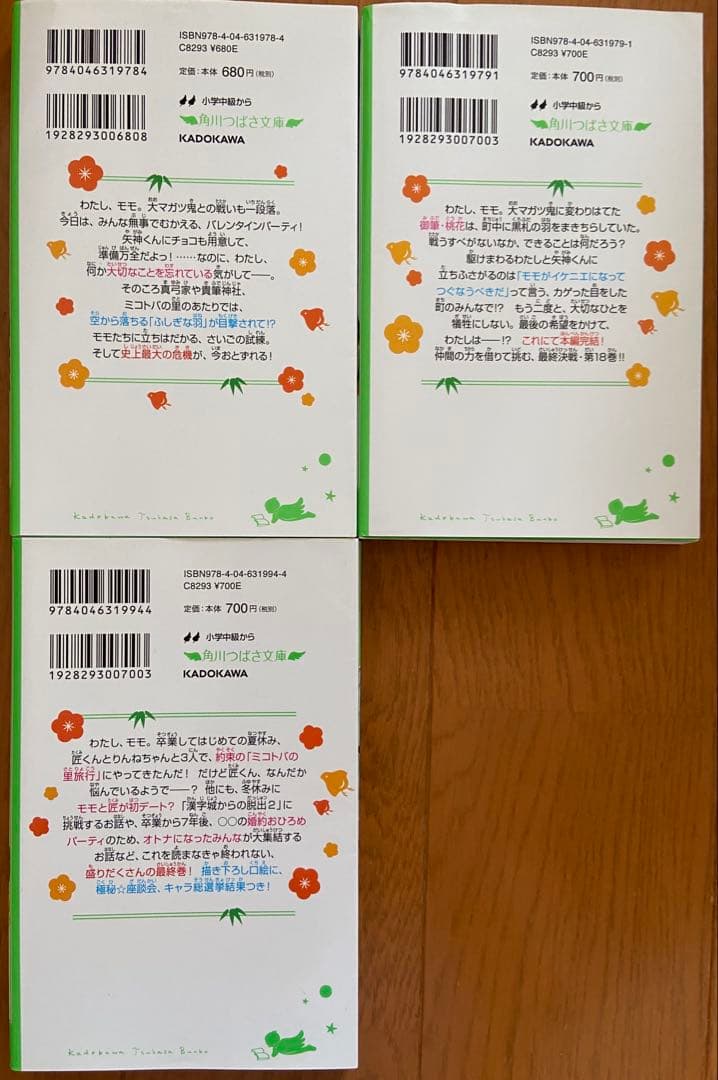 ISBN978-4-04-631978-4
C8293 ¥680E
9784046319784
定価：本体 680円(税別)
小学中級から
1928293006808
角川つばさ文庫
KADOKAWA
わたし、モモ。大マガツ鬼との戦いも一段落。
今日は、みんな無事でむかえる、バレンタインパーティ！
矢神くんにチョコも用意して、
準備万全だよっ！……なのに、わたし、
何か大切なことを忘れている気がして――。
そのころ真弓家や貴筆神社、
ミコトバの里のあたりでは、
空から落ちる「ふしぎな羽」が目撃されて!?
モモたちに立ちはだかる、さいごの試練。
そして史上最大の危機が、今おとずれる！
Kadokawa Tsubasa Bunko
ISBN978-4-04-631979-1
C8293 ¥700E
9784046319791
定価：本体 700円(税別)
小学中級から
1928293007003
角川つばさ文庫
KADOKAWA
わたし、モモ。大マガツ鬼に変わりはてた
御筆・桃花は、町中に黒札の羽をまきちらしていた。
戦うすべがないなか、できることは何だろう？
駆けまわるわたしと矢神くんに
立ちふさがるのは「モモがイケニエになって
つぐなうべきだ」って言う、カゲった目をした
町のみんなで!?　もう二度と、大切なひとを
犠牲にしない。最後の希望をかけて、
わたしは――!?　これにて本編完結！
仲間の力を借りて挑む、最終決戦・第18巻!!
Kadokawa Tsubasa Bunko
ISBN978-4-04-631994-4
C8293 ¥700E
9784046319944
定価：本体 700円(税別)
小学中級から
1928293007003
角川つばさ文庫
KADOKAWA
わたし、モモ。卒業してはじめての夏休み、
匠くんとりんねちゃんと3人で、約束の「ミコトバの
里旅行」にやってきたんだ！ だけど匠くん、なんだか
悩んでいるようで――？ 他にも、冬休みに
モモと匠が初デート？「漢字城からの脱出2」に
挑戦するお話や、卒業から7年後、○○の婚約おひろめ
パーティのため、オトナになったみんなが大集結する
お話など、これを読まなきゃ終われない、
盛りだくさんの最終巻！ 描き下ろし口絵に、
極秘☆座談会、キャラ総選挙結果つき！
Kadokawa Tsubasa Bunko